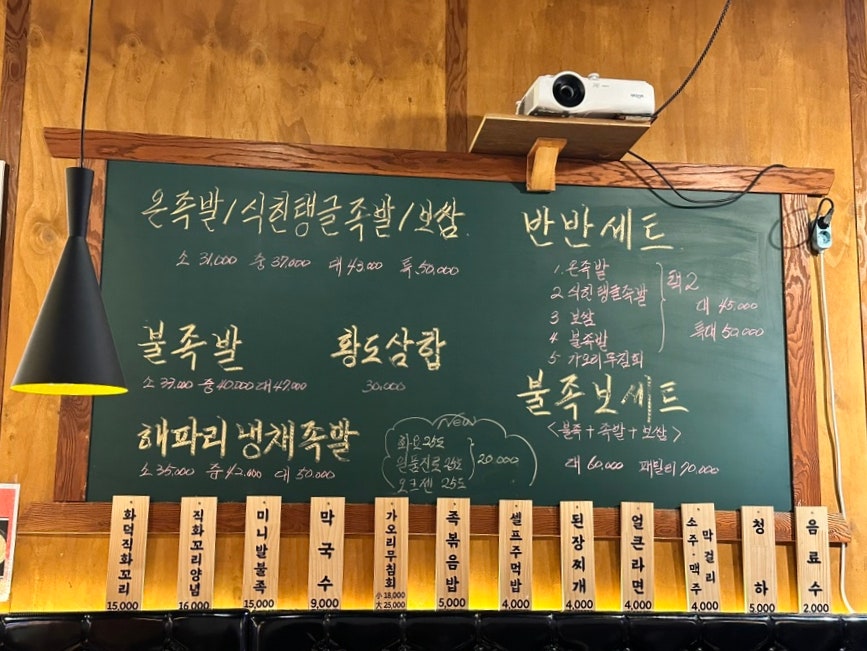 온족발/식힌탱글족발/보쌈
소 31,000 중 37,000 대 43,000 특.50,000
불족발
소 33,000 중 40,000 대 47,000
황도삼합
30,000
해파리냉채족발
소 35,000 중 42,000 대 50,000
New
화요25도
원동진로 25도
오크젠 25도
20,000
반반세트
1. 온족발
2 식힌탱글족발
3 보쌈
4 불족발
5 가오리무침회
택2
대 45,000
특대 50,000
불족보세트
<불족+족발+보쌈>
대 60,000 패밀리 70,000
화덕직화꼬리
15,000
직화꼬리양념
16,000
미니발불족
15,000
막국수
9,000
가오리무침회
小 18,000
大 25,000
족볶음밥
5,000
셀프주먹밥
4,000
된장찌개
4,000
얼큰라면
4,000
막걸리
소주·맥주
4,000
청하
5,000
음료수
2,000